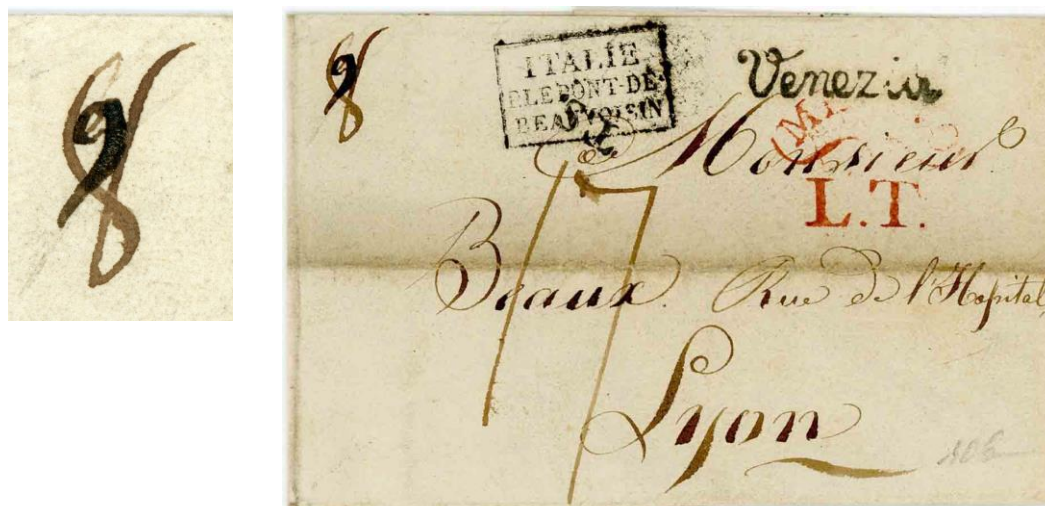 8
8
ITALIE
P.LE PONT-DE-
BEAUVOISIN
Venezia
A Monsieur
L.T.
17
Beaux. Rue de l'Hopital,
Lyon